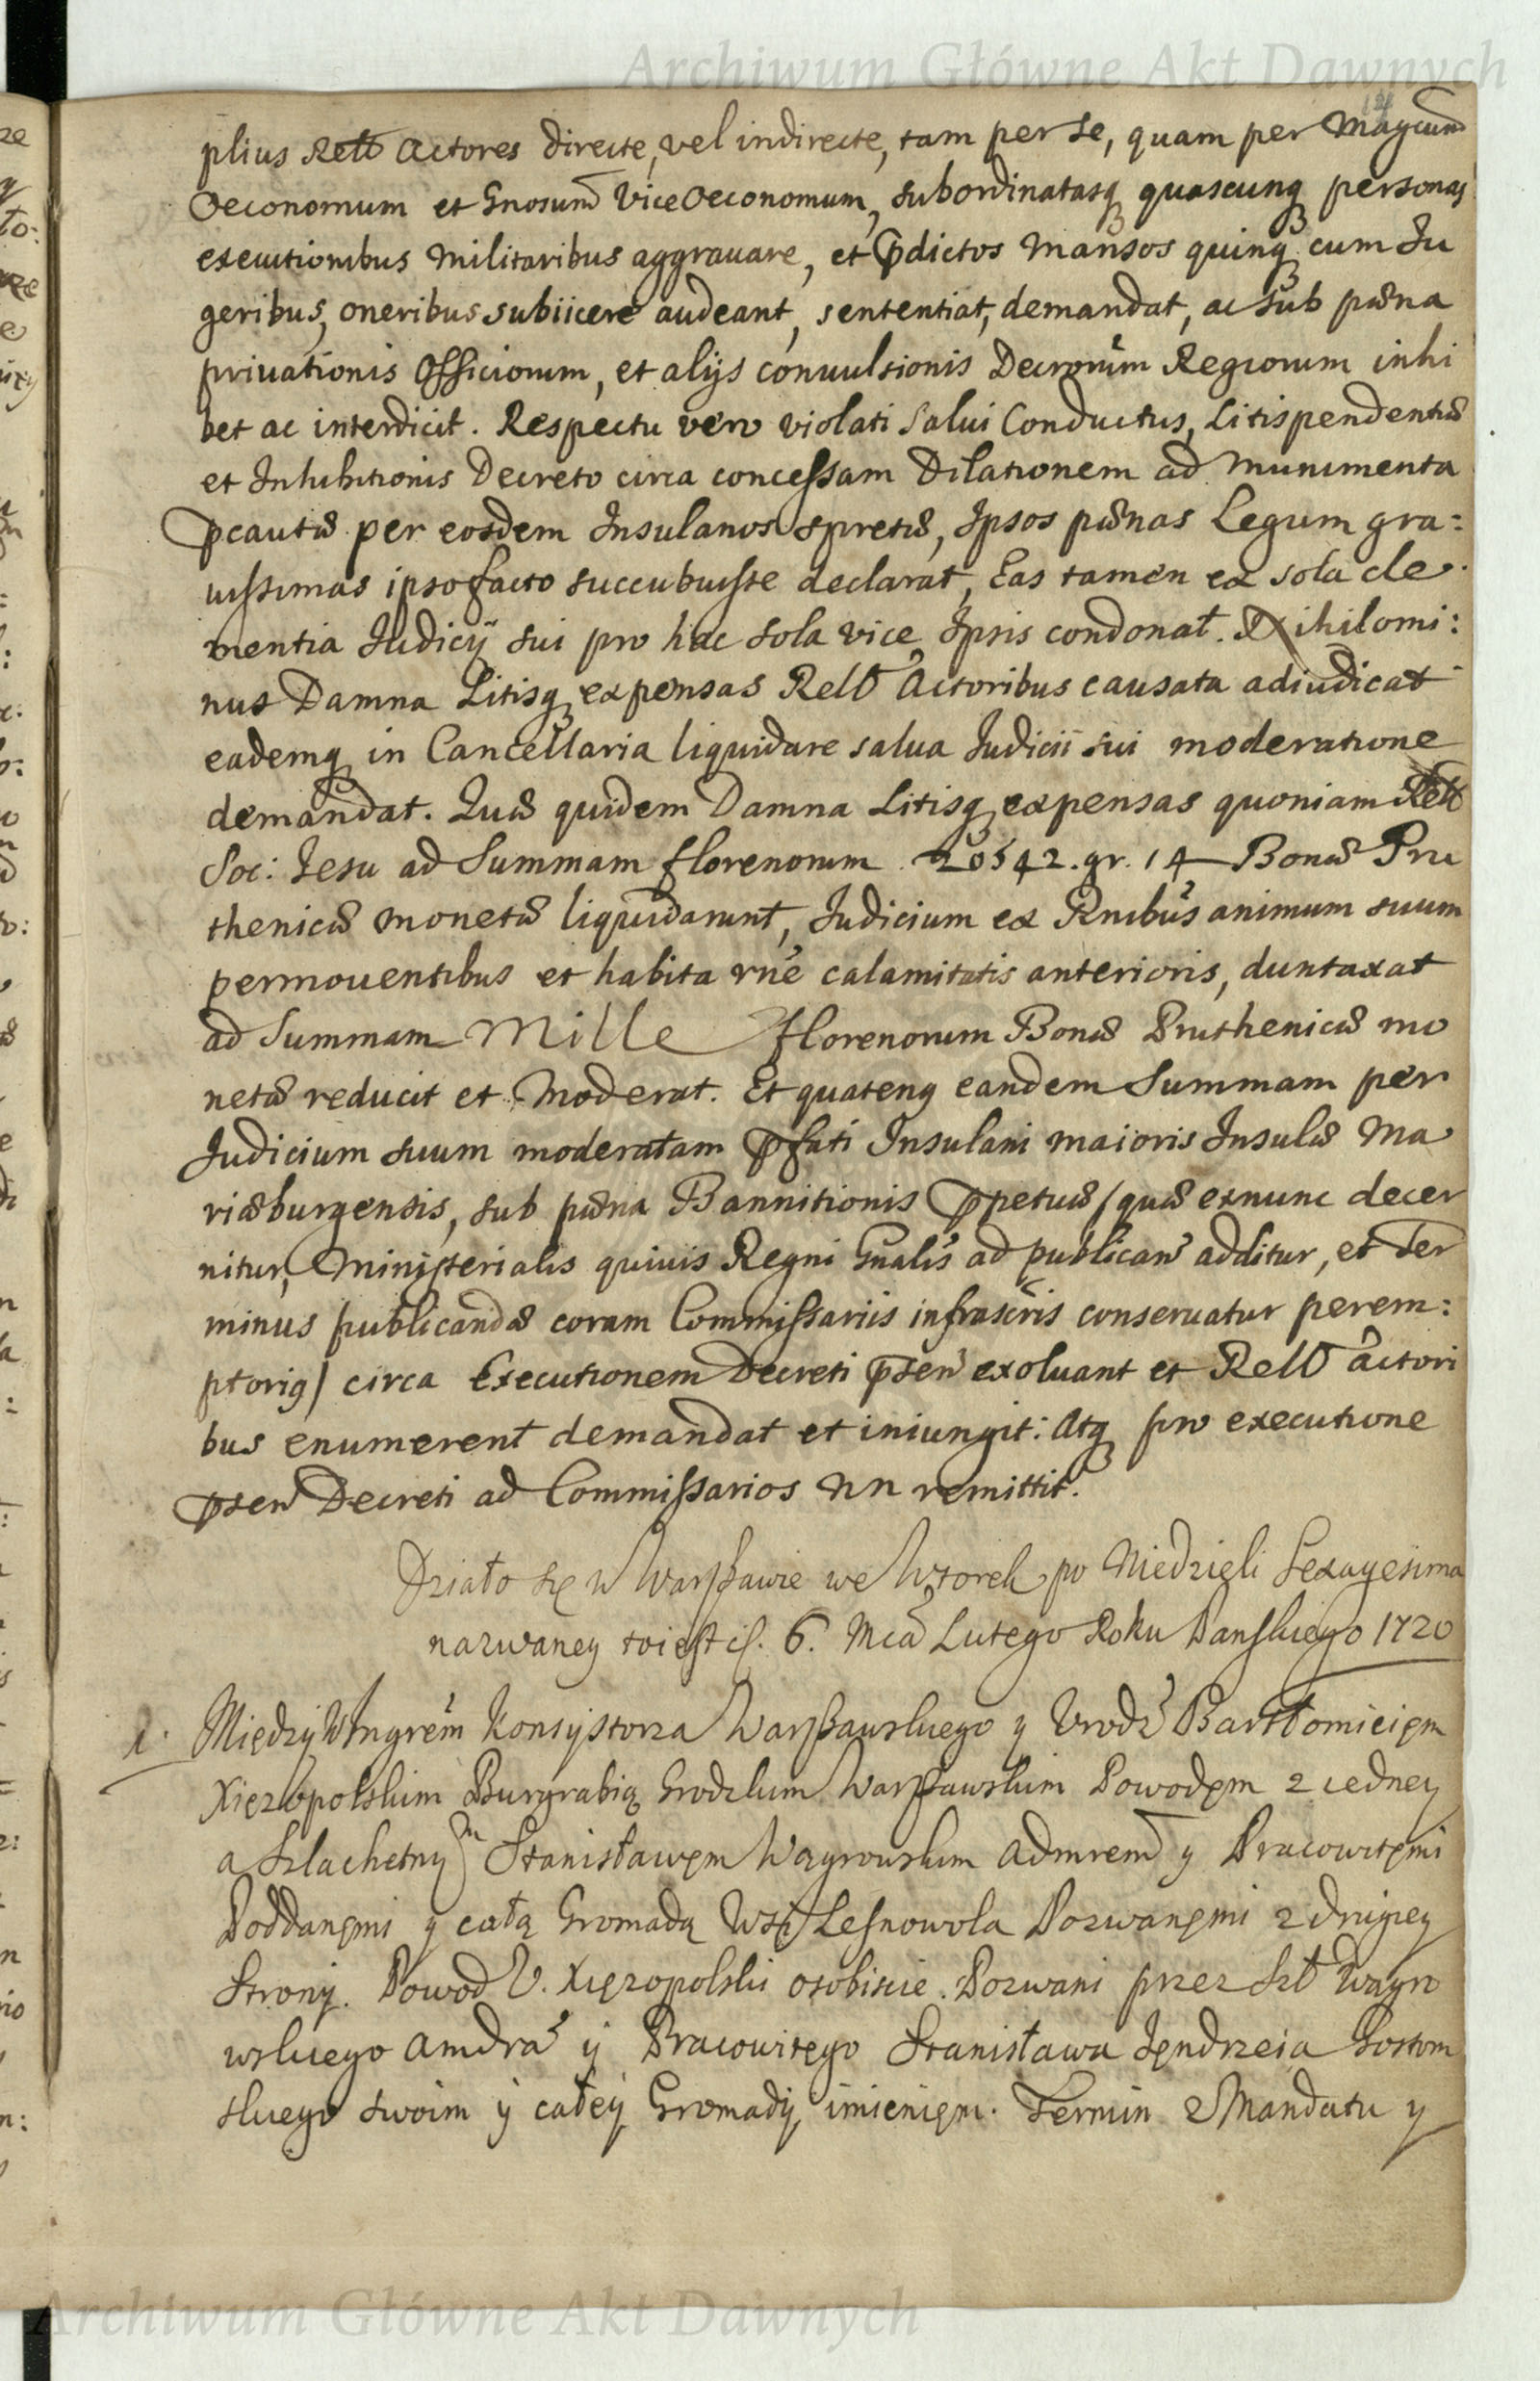 Archiwum Główne Akt Dawnych
plius Rell Actores directe, vel indirecte, tam per se, quam per Magcum
Oeconomum et Gnosum ViceOeconomum, subordinatasq quascunq personas
executionibus militaribus aggrauare, et pdictos Mansos quinq cum Ju
geribus, oneribus subiicere audeant, sententiat, demandat, ac sub pæna
priuationis Officiorum, et alijs conuulsionis Decrorum Regiorum inhi
bet ac interdicit. Respectu vero violati Salui Conductus, Litispendentiæ
et Inhibitionis Decreto circa concessam Dilationem ad Munimenta
pcautæ per eosdem Insulanos spretæ, Ipsos pænas Legum gra:
uissimas ipso facto succubuisse declarat, Eas tamen ex sola cle
mentia Judicij sui pro hac sola vice Ipsis condonat. Nihilomi:
nus Damna Litisq expensas Rell Actoribus causata adiudicat
eademq in Cancellaria liquidare salua Judicii sui moderatione
demandat. Quæ quidem Damna Litisq expensas quoniam Rell
Soc: Jesu ad Summam florenorum 20542. gr. 14 Bonæ Pru
thenicæ monetæ liquidarunt, Judicium ex Rnibus animum suum
permouentibus et habita rne calamitatis anterioris, duntaxat
ad Summam Mille florenorum Bonæ Pruthenicæ mo
netæ reducit et Moderat. Et quateng eandem Summam per
Judicium suum moderatam pfati Insulani maioris Insulæ Ma
riæburgensis, sub pæna Bannitionis ppetuæ /quæ exnunc decer
nitur, Ministerialis quiuis Regni Gnalis ad publican additur, et Ter
minus publicandæ coram Commissariis infrascris conseruatur perem:
ptorig/ circa Executionem Decreti psen exoluant et Rell Actori
bus enumerent demandat et iniungit: Atq pro executione
psen Decreti ad Commissarios NN remittit.
Działo się w Warszawie we Wtorek po Niedzieli Sexagesima
nazwaney toiest is. 6. Mca Lutego Roku Panskiego 1720
1. Między Instygrem Konsystorza Warszawskiego y Urodz Bartłomieiem
Xięzopolskim Burgrabią Grodzkim Warszawskim Powodem z iedney
a Szlachetnym Stanisławem Wągrowskim Admrem y Pracowitemi
Poddanemi y całą Gromadą Wsi Lesnowola Pozwanemi z drugiey
Strony. Powod U. Xięzopolski osobiscie. Pozwani przez Szl Wągro
wskiego Amdra y Pracowitego Stanisława Jendrzeia Gostom
skiego swoim y całey Gromady imieniem. Termin z Mandatu y
Archiwum Główne Akt Dawnych